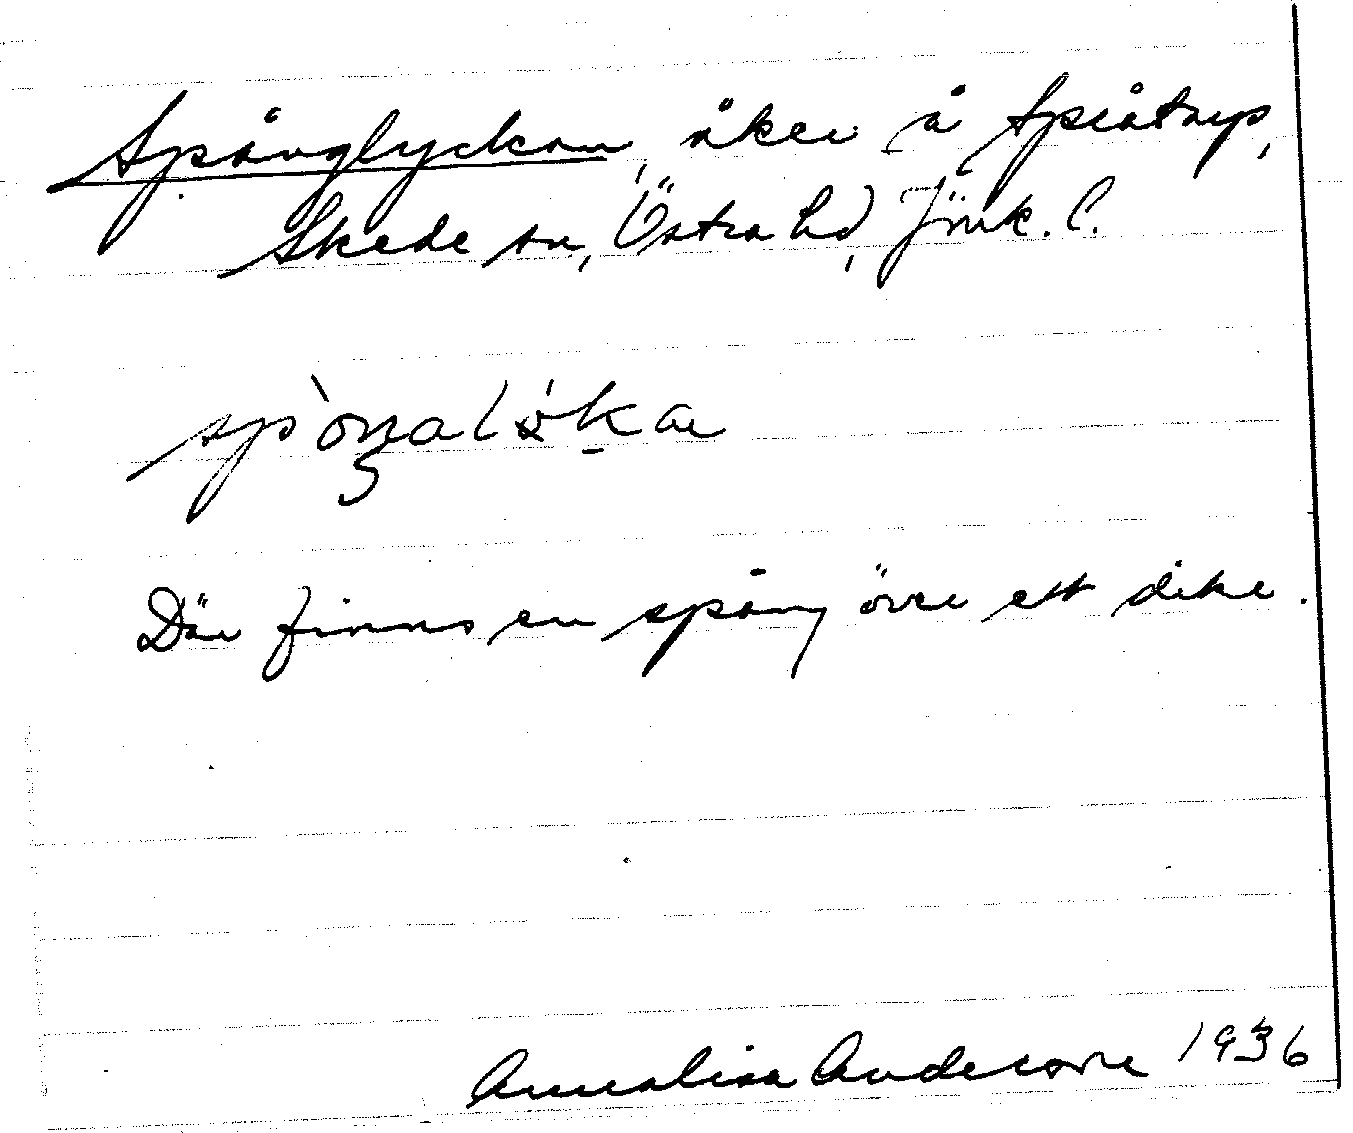 Spånglyckan, åker å Språtorp,
Skede sn, Östra hd, Jönk. l.
Där finns en spång över ett dike.
Annalisa Anderson 1936